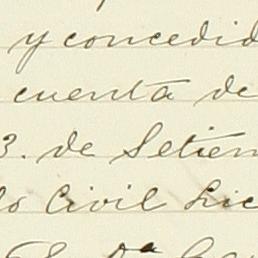 y concedid
cuenta de
3. de Setiem
lo Civil Lic